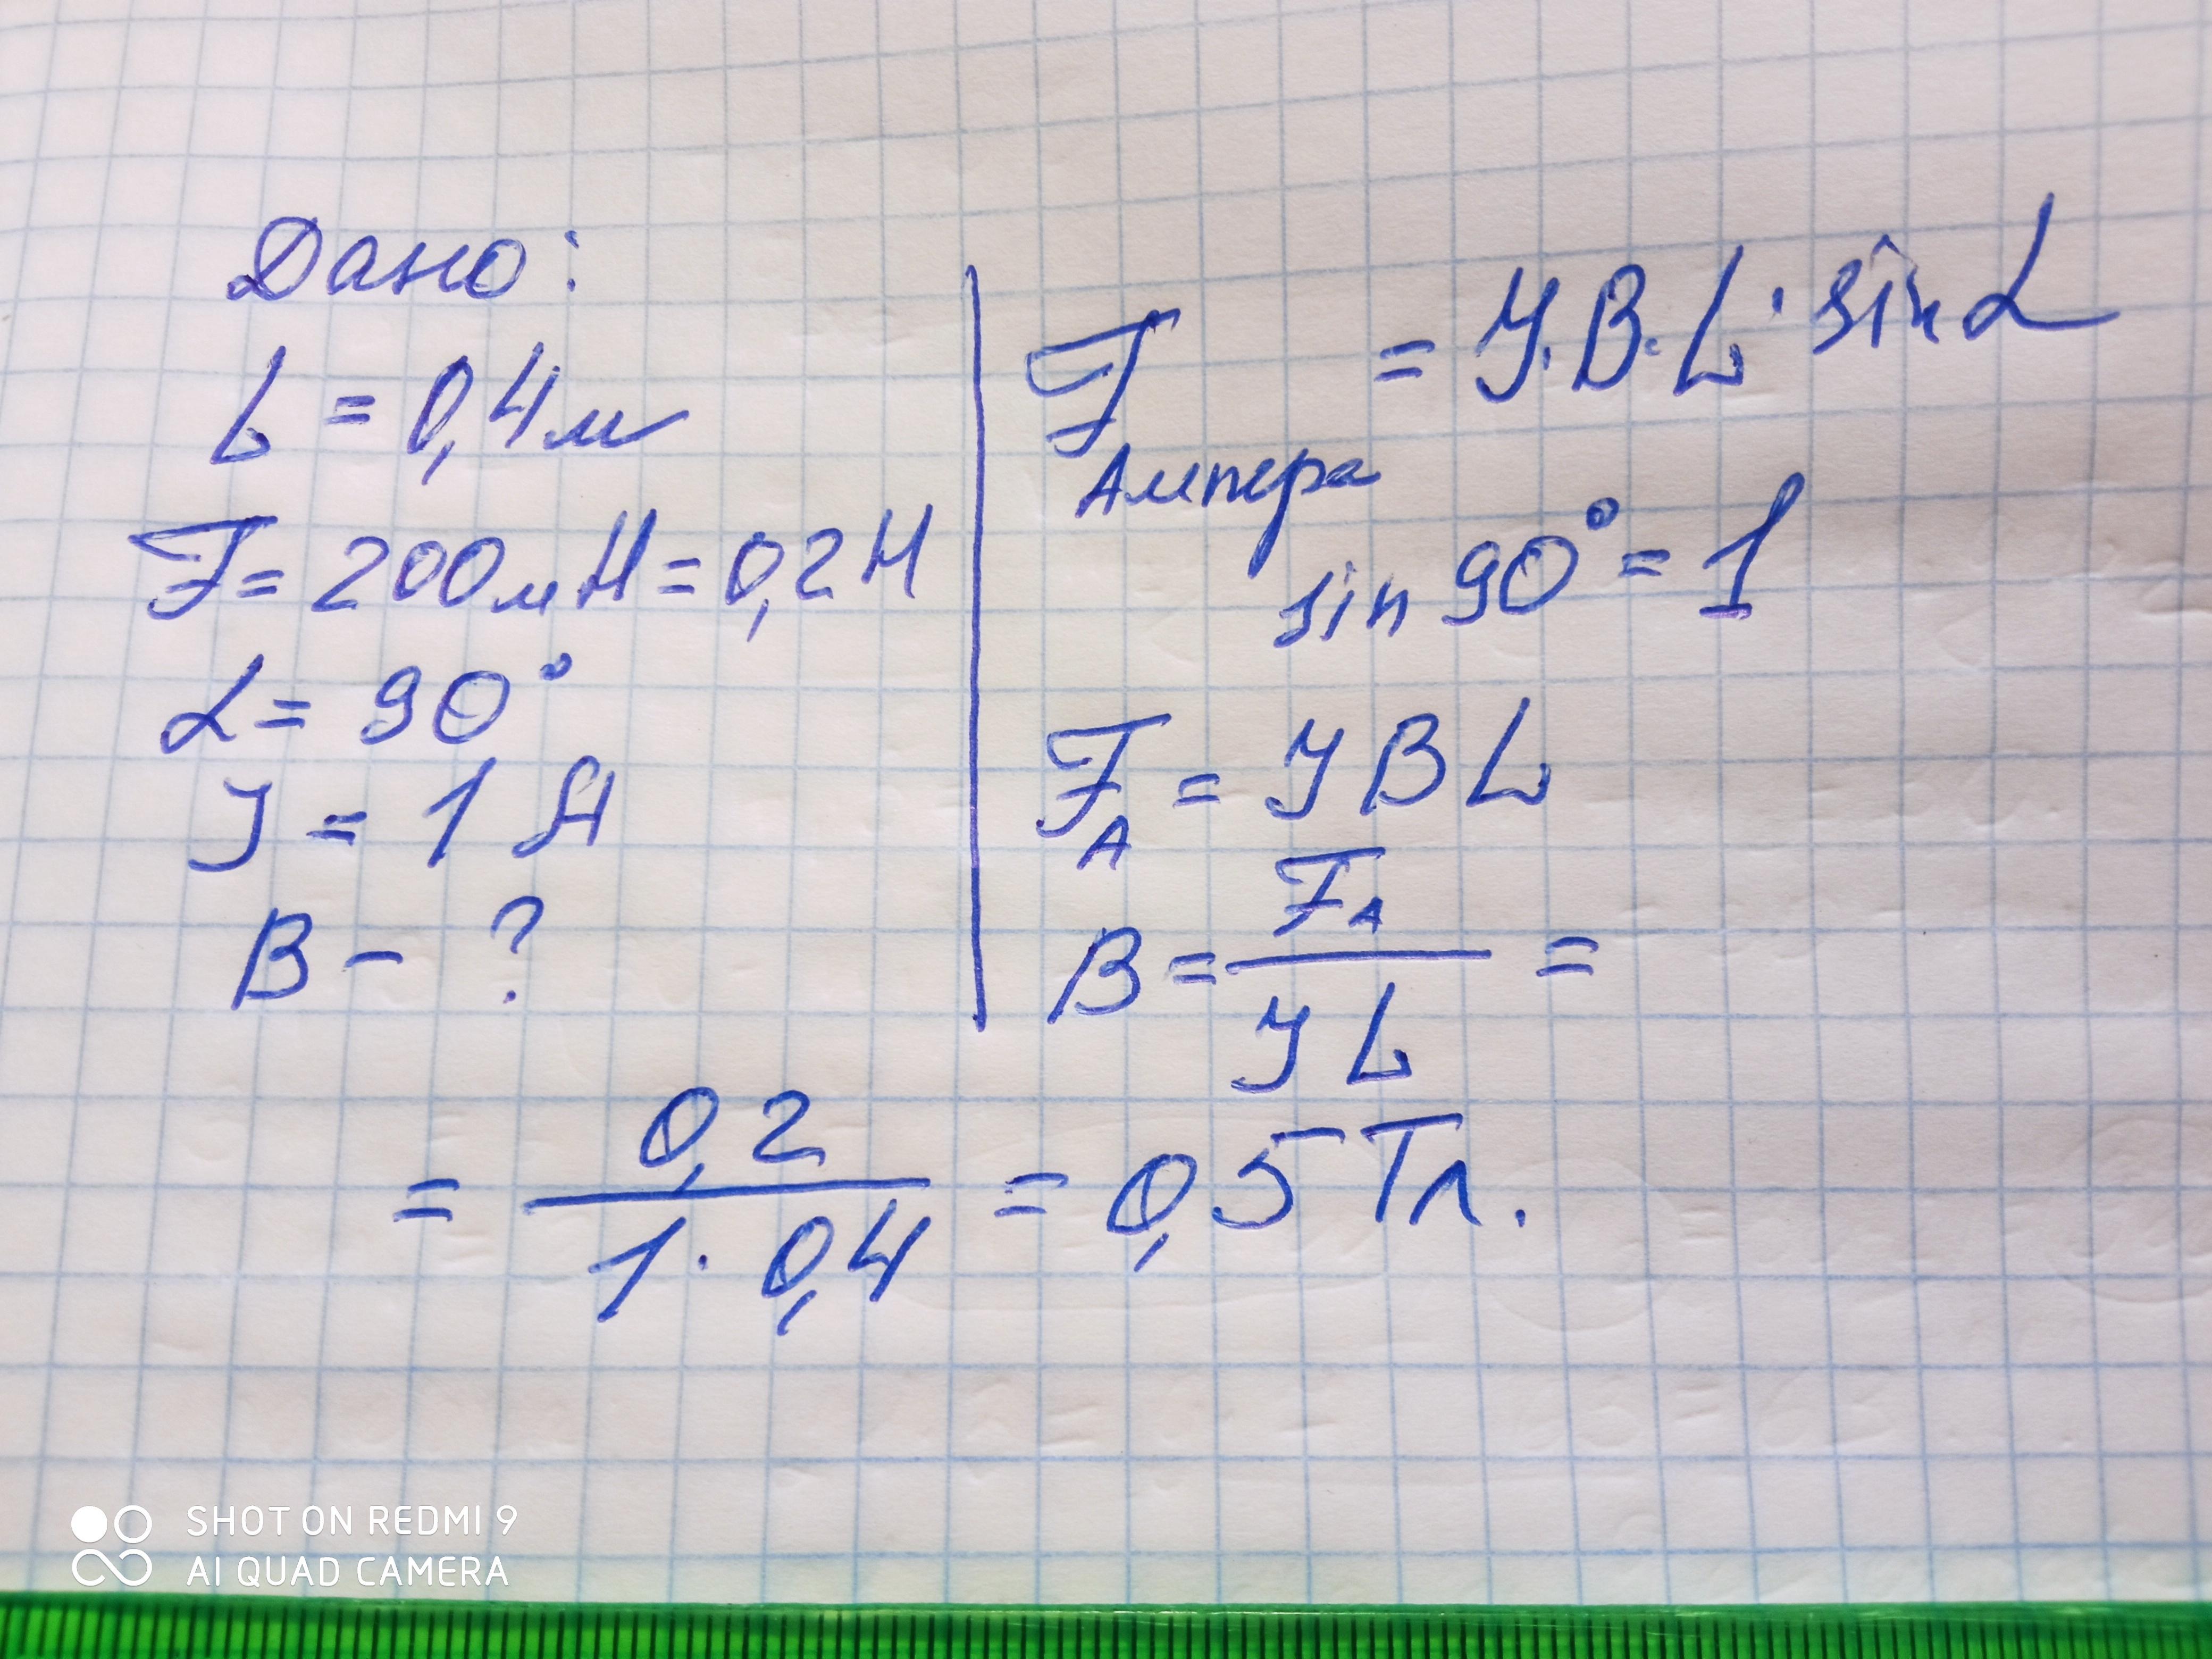 Дано:
L = 0,4м
F = 200мН = 0,2Н
α = 90°
I = 1 А
B - ?
F Ампера = I·B·L·sin α
sin 90° = 1
F A = I B L
B = F A / I L =
= 0,2 / 1·0,4 = 0,5 Тл.
SHOT ON REDMI 9
AI QUAD CAMERA